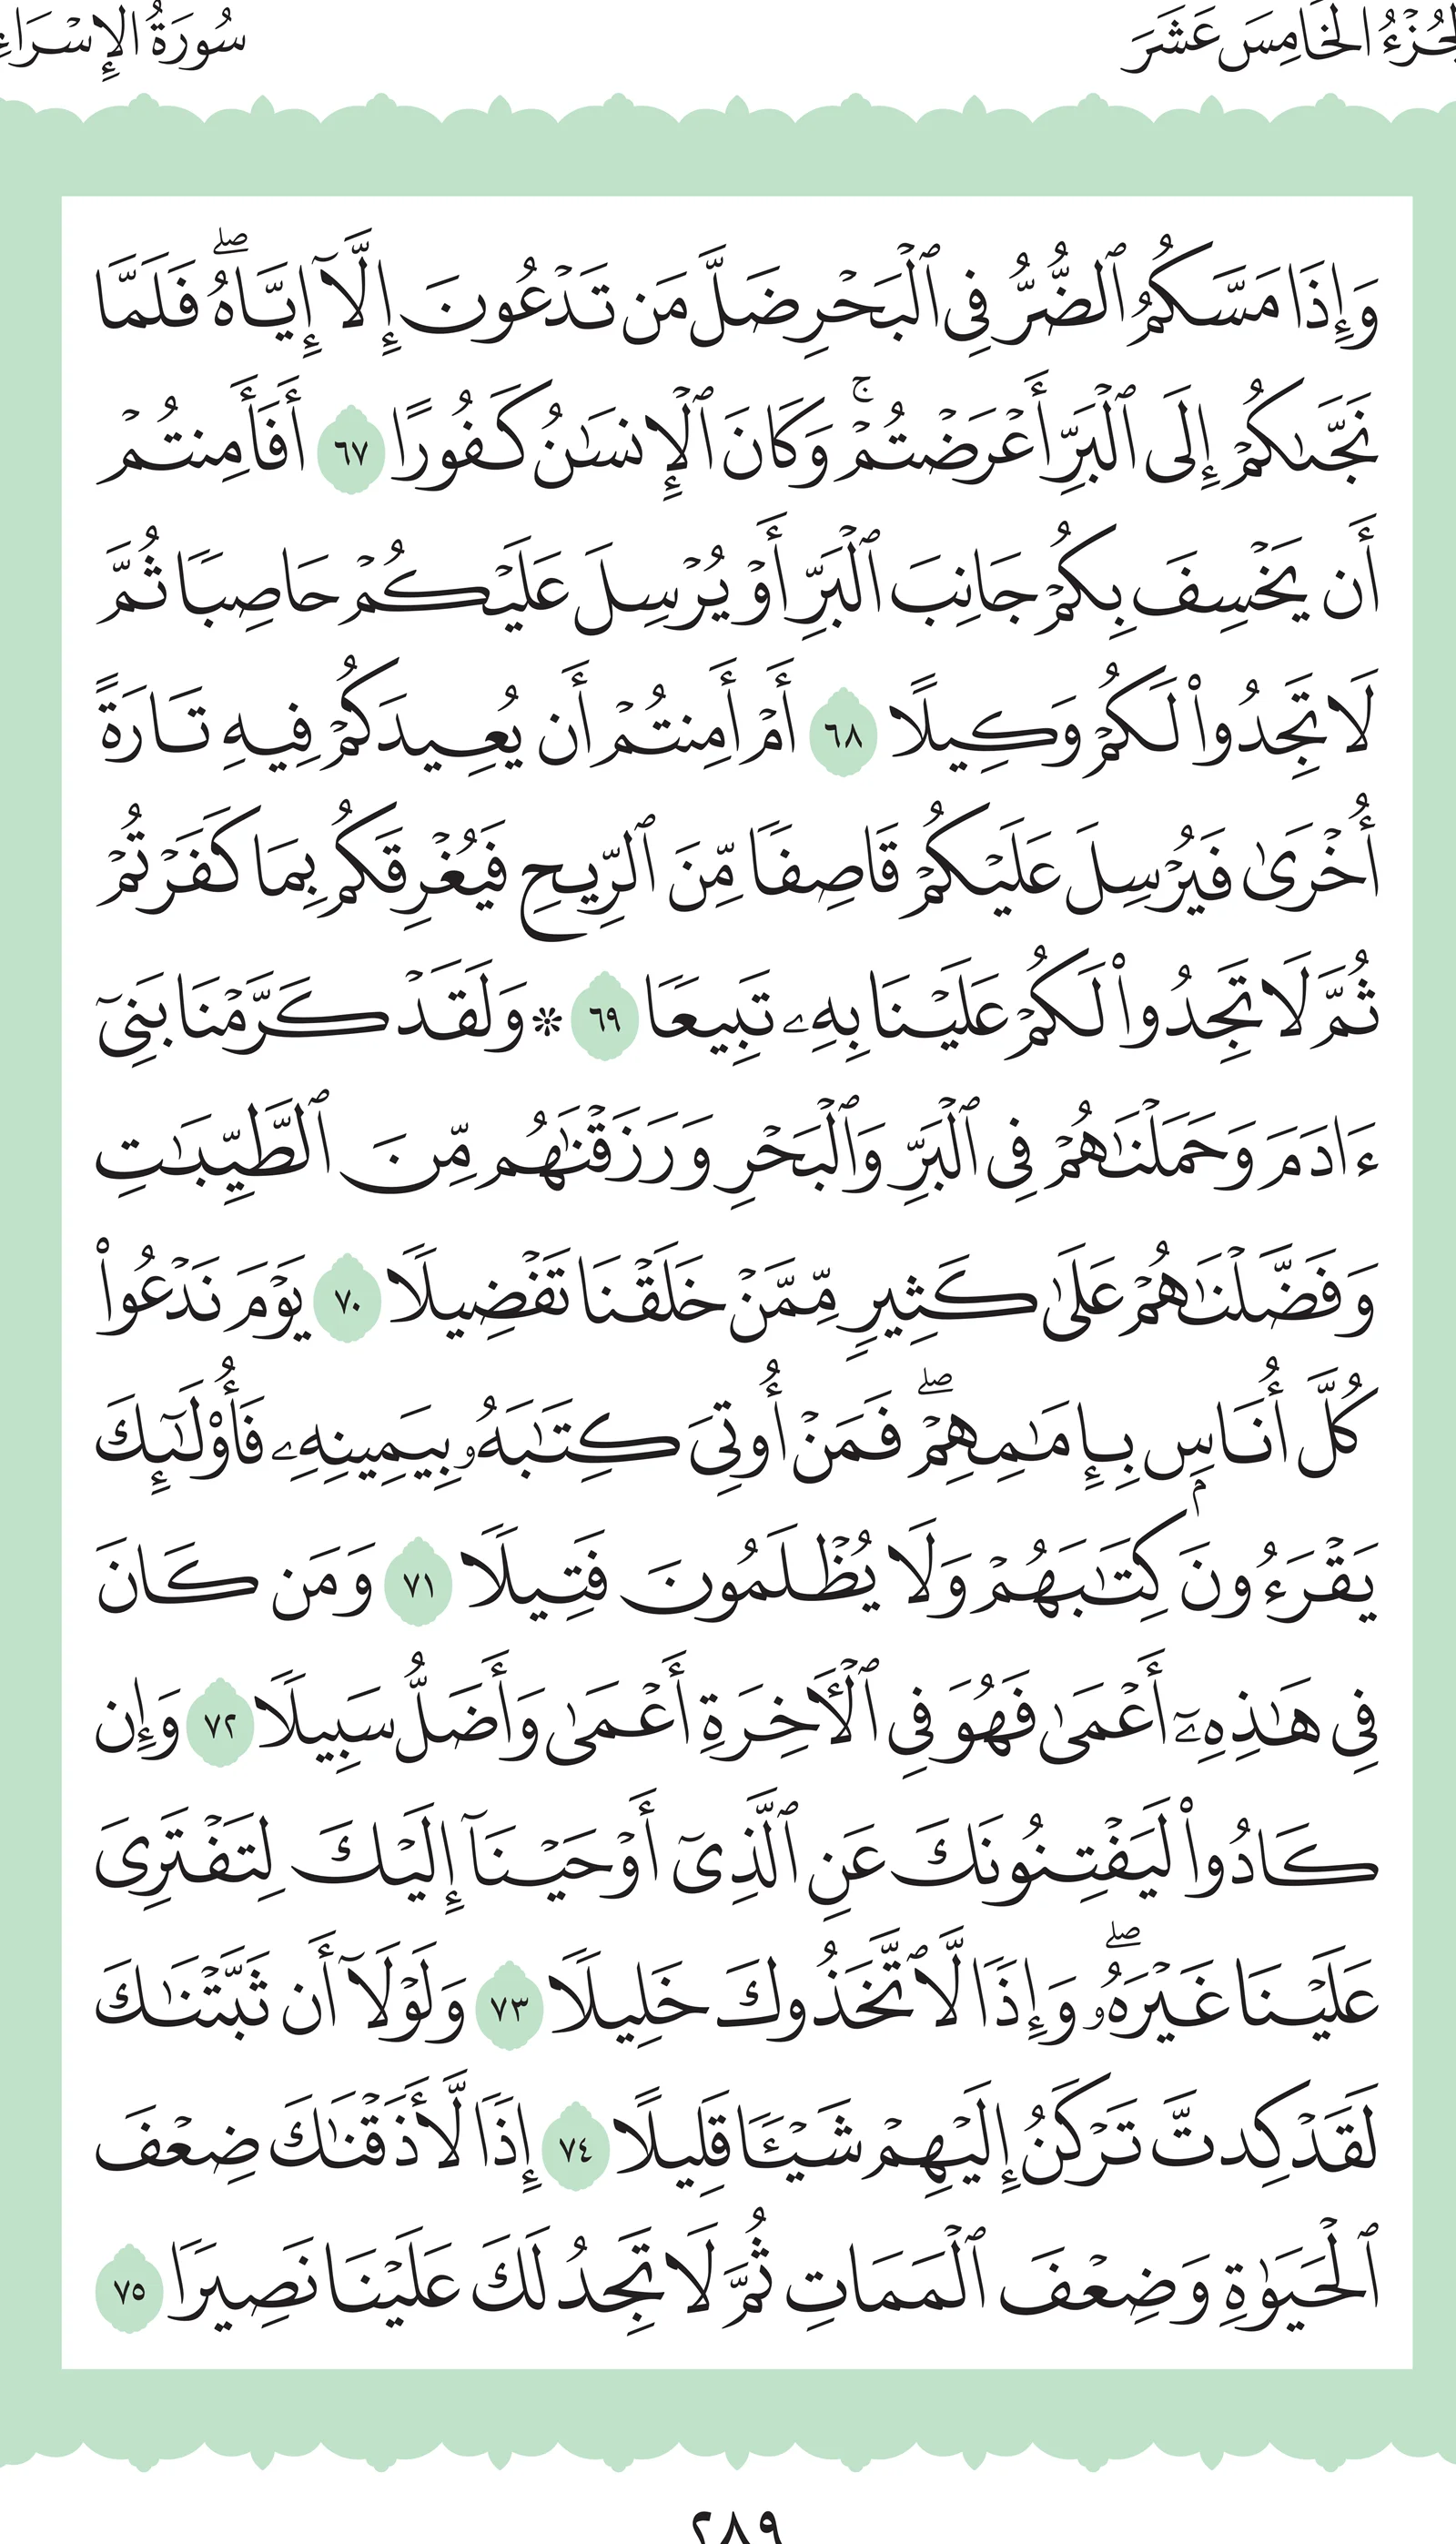 الجُزْءُ الخَامِسَ عَشَرَ سُورَةُ الإِسْرَاءِ
وَإِذَا مَسَّكُمُ ٱلضُّرُّ فِي ٱلۡبَحۡرِ ضَلَّ مَن تَدۡعُونَ إِلَّآ إِيَّاهُۖ فَلَمَّا
نَجَّىٰكُمۡ إِلَى ٱلۡبَرِّ أَعۡرَضۡتُمۡۚ وَكَانَ ٱلۡإِنسَٰنُ كَفُورًا ٦٧ أَفَأَمِنتُمۡ
أَن يَخۡسِفَ بِكُمۡ جَانِبَ ٱلۡبَرِّ أَوۡ يُرۡسِلَ عَلَيۡكُمۡ حَاصِبٗا ثُمَّ
لَا تَجِدُواْ لَكُمۡ وَكِيلًا ٦٨ أَمۡ أَمِنتُمۡ أَن يُعِيدَكُمۡ فِيهِ تَارَةً
أُخۡرَىٰ فَيُرۡسِلَ عَلَيۡكُمۡ قَاصِفٗا مِّنَ ٱلرِّيحِ فَيُغۡرِقَكُم بِمَا كَفَرۡتُمۡ
ثُمَّ لَا تَجِدُواْ لَكُمۡ عَلَيۡنَا بِهِۦ تَبِيعٗا ٦٩ ۞ وَلَقَدۡ كَرَّمۡنَا بَنِيٓ
ءَادَمَ وَحَمَلۡنَٰهُمۡ فِي ٱلۡبَرِّ وَٱلۡبَحۡرِ وَرَزَقۡنَٰهُم مِّنَ ٱلطَّيِّبَٰتِ
وَفَضَّلۡنَٰهُمۡ عَلَىٰ كَثِيرٖ مِّمَّنۡ خَلَقۡنَا تَفۡضِيلٗا ٧٠ يَوۡمَ نَدۡعُواْ
كُلَّ أُنَاسِۭ بِإِمَٰمِهِمۡۖ فَمَنۡ أُوتِيَ كِتَٰبَهُۥ بِيَمِينِهِۦ فَأُوْلَٰٓئِكَ
يَقۡرَءُونَ كِتَٰبَهُمۡ وَلَا يُظۡلَمُونَ فَتِيلٗا ٧١ وَمَن كَانَ
فِي هَٰذِهِۦٓ أَعۡمَىٰ فَهُوَ فِي ٱلۡأٓخِرَةِ أَعۡمَىٰ وَأَضَلُّ سَبِيلٗا ٧٢ وَإِن
كَادُواْ لَيَفۡتِنُونَكَ عَنِ ٱلَّذِيٓ أَوۡحَيۡنَآ إِلَيۡكَ لِتَفۡتَرِيَ
عَلَيۡنَا غَيۡرَهُۥۖ وَإِذٗا لَّٱتَّخَذُوكَ خَلِيلٗا ٧٣ وَلَوۡلَآ أَن ثَبَّتۡنَٰكَ
لَقَدۡ كِدتَّ تَرۡكَنُ إِلَيۡهِمۡ شَيۡـٔٗا قَلِيلًا ٧٤ إِذٗا لَّأَذَقۡنَٰكَ ضِعۡفَ
ٱلۡحَيَوٰةِ وَضِعۡفَ ٱلۡمَمَاتِ ثُمَّ لَا تَجِدُ لَكَ عَلَيۡنَا نَصِيرٗا ٧٥
٢٨٩